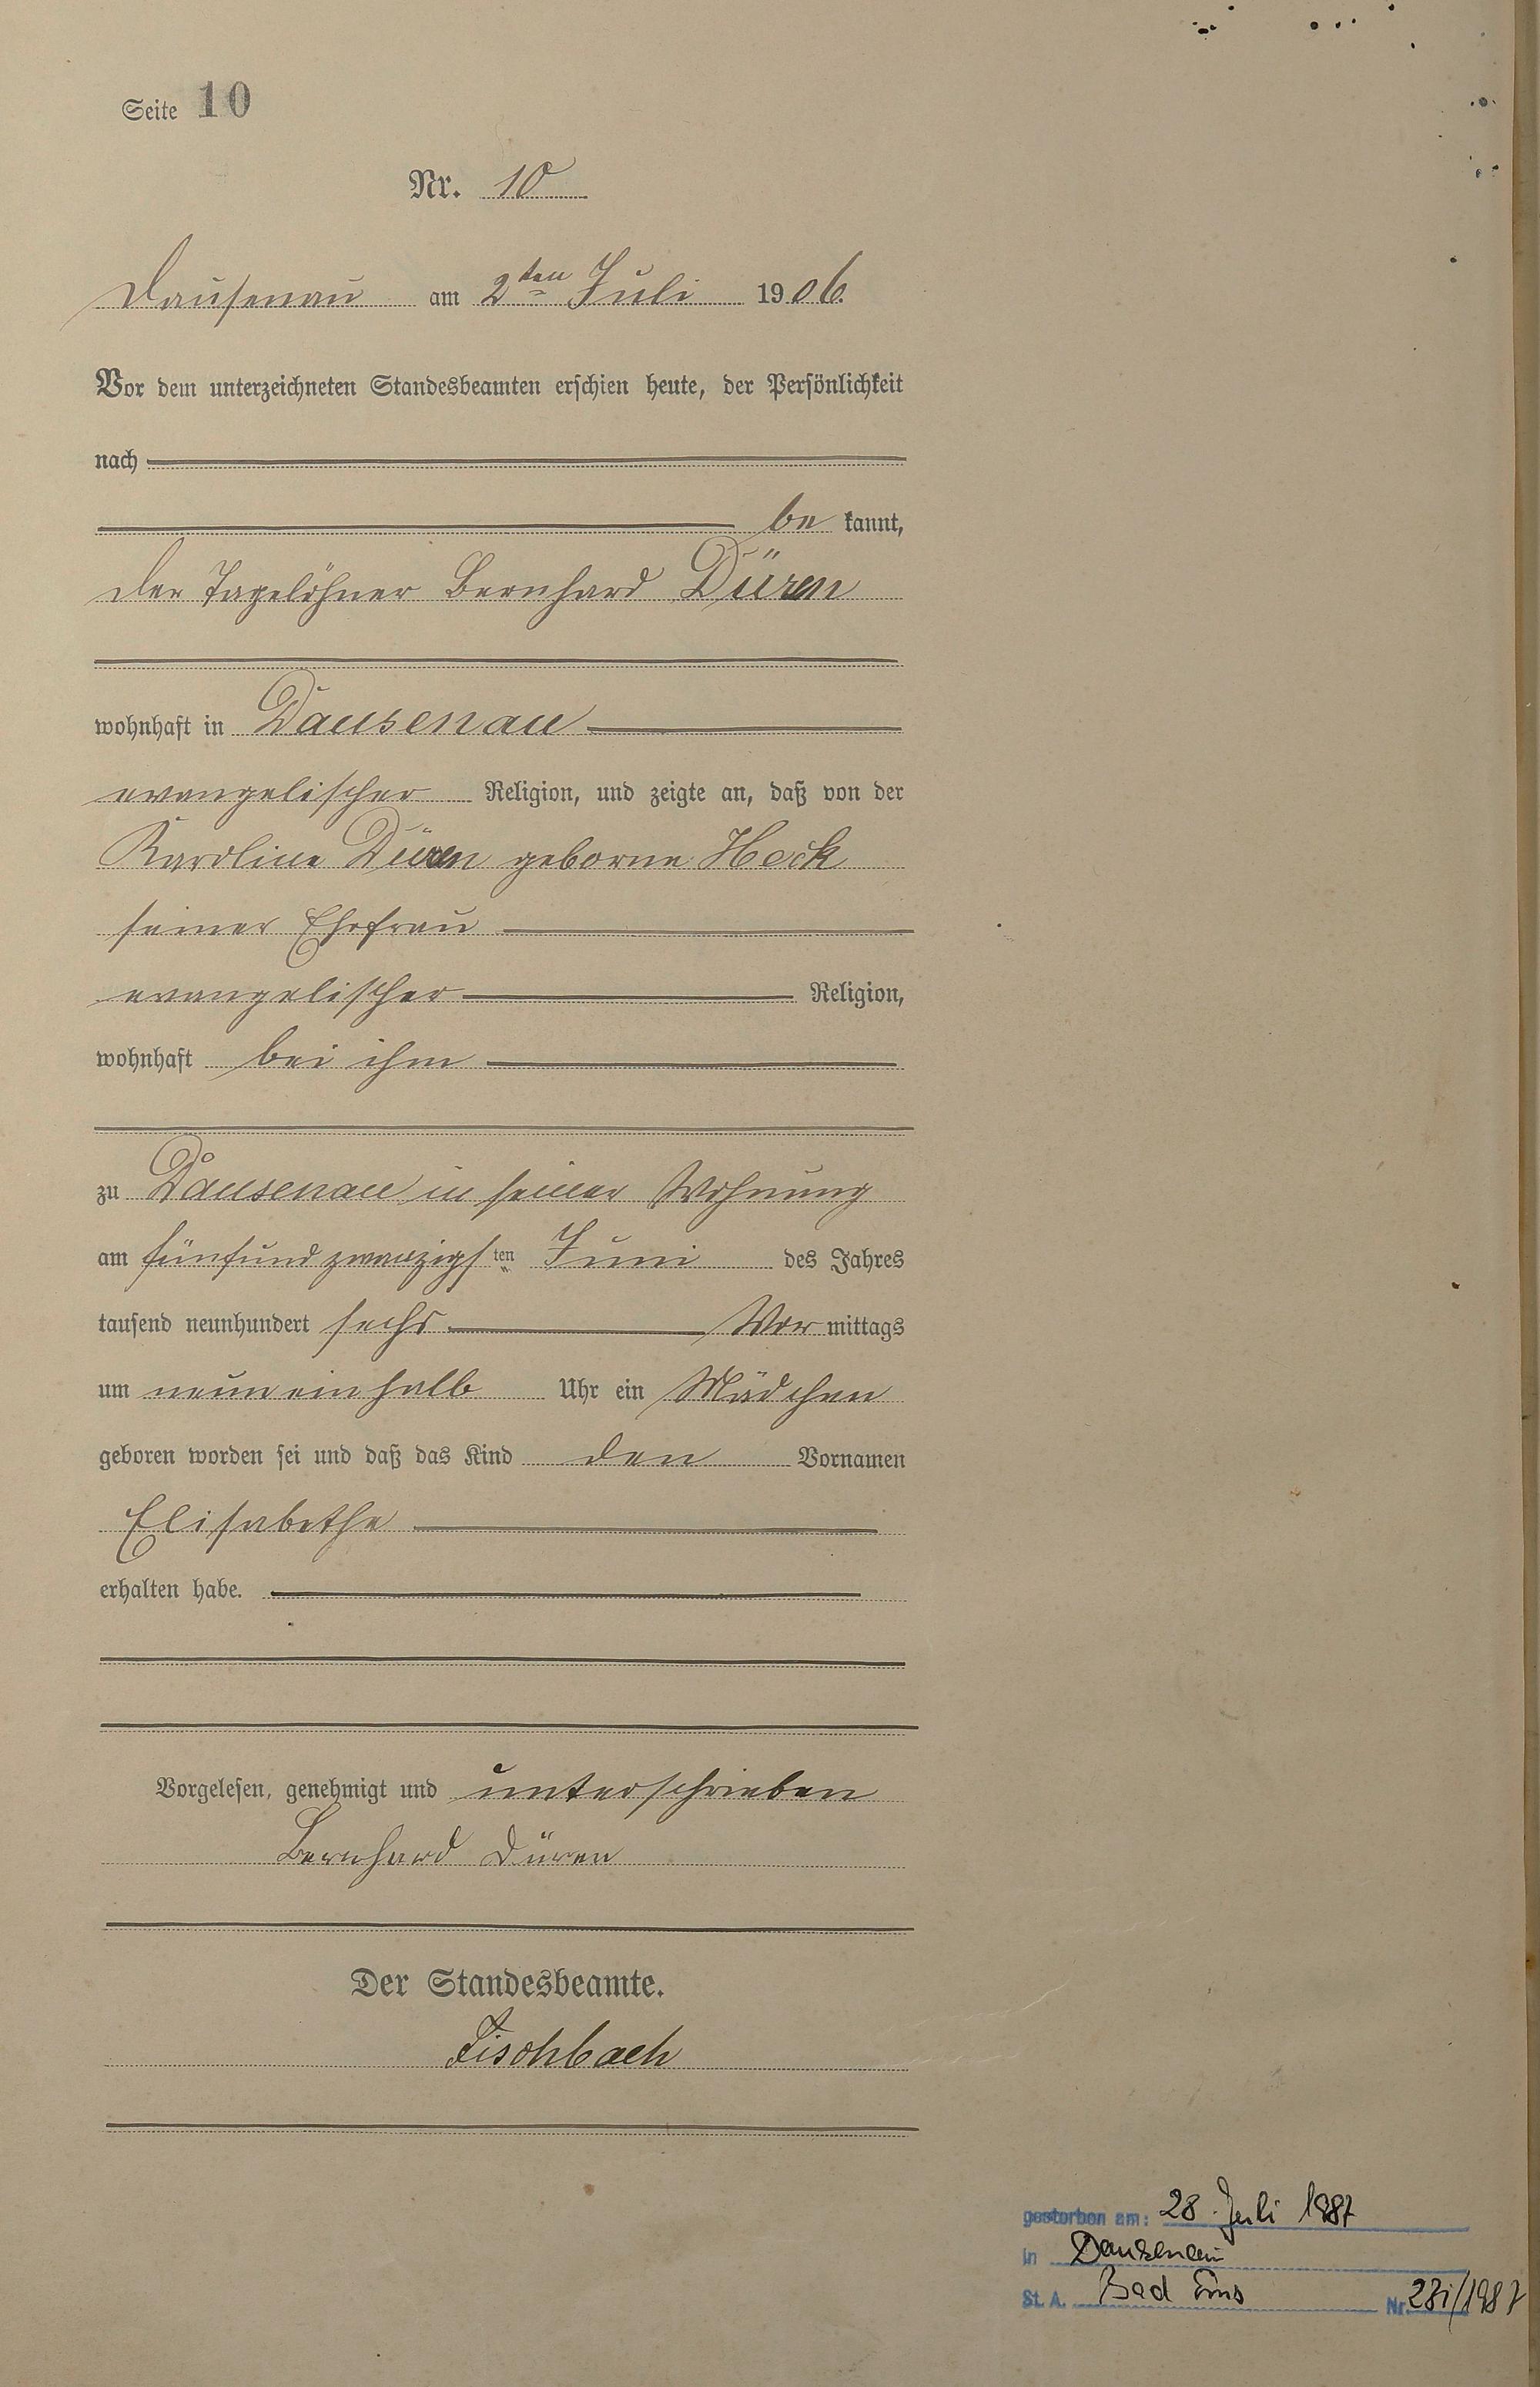 Seite 10
Nr. 10
Dausenau am 2ten Juli 1906.
Vor dem unterzeichneten Standesbeamten erschien heute, der Persönlichkeit
nach
be kannt,
der Tagelöhner Bernhard Düren
wohnhaft in Dausenau
evangelischer Religion, und zeigte an, daß von der
Karoline Düren geborne Heck
seiner Ehefrau
evangelischer Religion,
wohnhaft bei ihm
zu Dausenau in seiner Wohnung
am fünfundzwanzigsten Juni des Jahres
tausend neunhundert sechs Vor mittags
um neun ein halb Uhr ein Mädchen
geboren worden sei und daß das Kind den Vornamen
Elisabethe
erhalten habe.
Vorgelesen, genehmigt und unterschrieben
Bernhard Düren
Der Standesbeamte.
Fischbach
gestorben am: 28. Juli 1987
in Dausenau
St. A. Bad Ems Nr. /1987